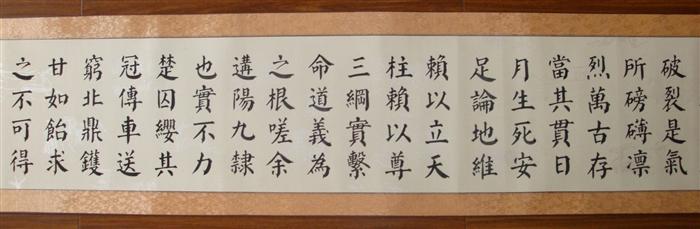 破裂是氣
所磅礴凜
烈萬古存
當其貫日
月生死安
足論地維
賴以立天
柱賴以尊
三綱實繫
命道義為
之根嗟余
遘陽九隸
也實不力
楚囚纓其
冠傳車送
窮北鼎鑊
甘如飴求
之不可得